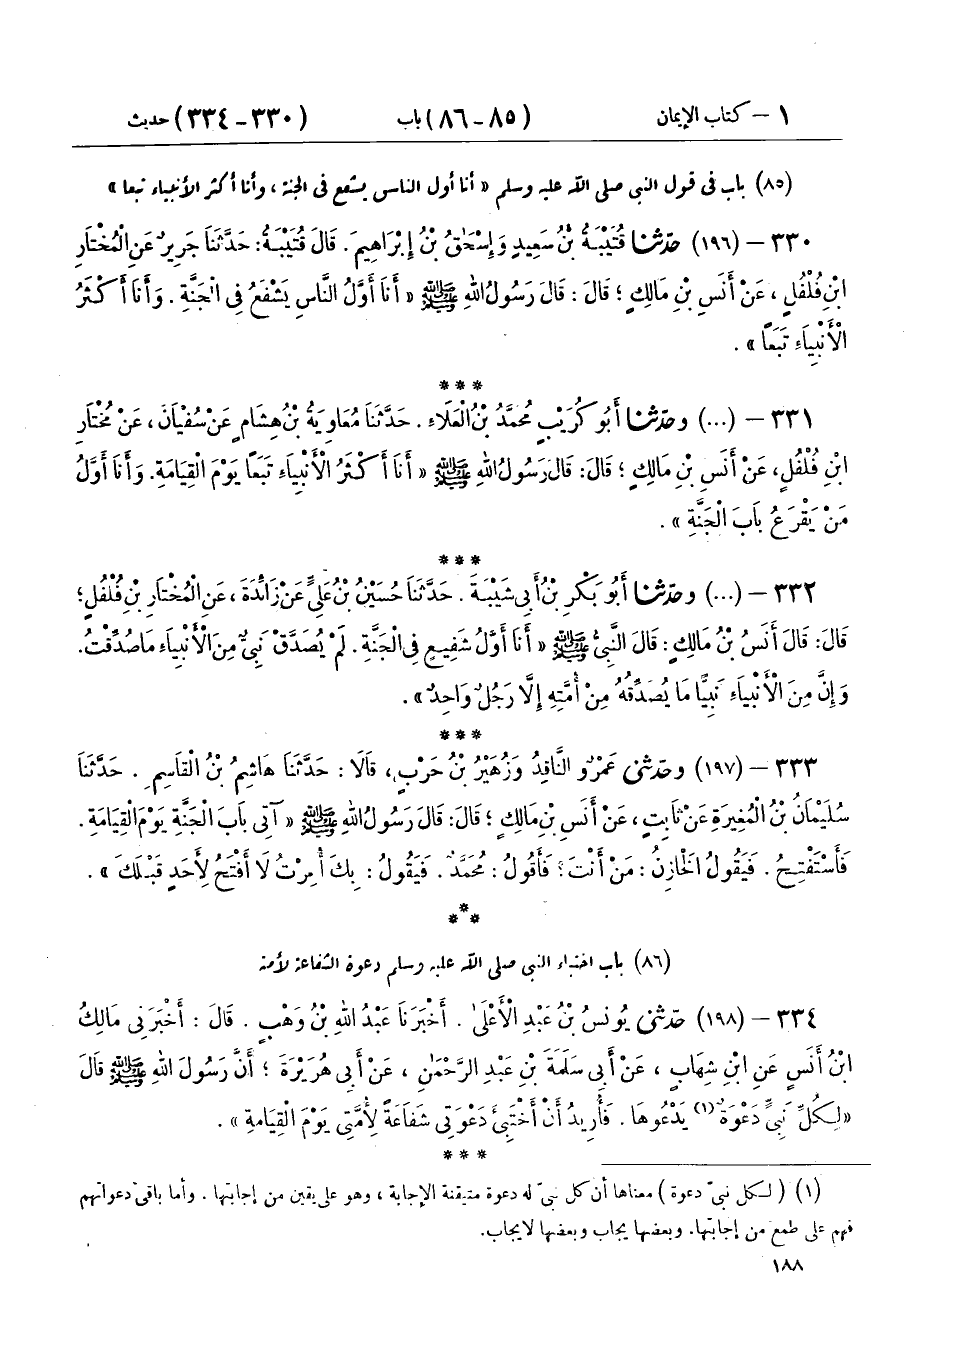 ١ – كتاب الإيمان (٨٥-٨٦) باب (٣٣٠-٣٣٤) حديث
(٨٥) باب فى قول النبي صلى الله عليه وسلم « أنا أول الناس يشفع فى الجنة ، وأنا أكثر الأنبياء تبعا »
٣٣٠ – (١٩٦) حَدَّثَنَا قُتَيْبَةُ بْنُ سَعِيدٍ وَإِسْحَقُ بْنُ إِبْرَاهِيمَ. قَالَ قُتَيْبَةُ: حَدَّثَنَا جَرِيرٌ عَنِ الْمُخْتَارِ
ابْنِ فُلْفُلٍ ، عَنْ أَنَسِ بْنِ مَالِكٍ ؛ قَالَ : قَالَ رَسُولُ اللهِ ﷺ « أَنَا أَوَّلُ النَّاسِ يَشْفَعُ فِي الْجَنَّةِ . وَأَنَا أَكْثَرُ
الْأَنْبِيَاءِ تَبَعًا » .
* * *
٣٣١ – (...) وحَدَّثَنَا أَبُو كُرَيْبٍ مُحَمَّدُ بْنُ الْعَلَاءِ . حَدَّثَنَا مُعَاوِيَةُ بْنُ هِشَامٍ عَنْ سُفْيَانَ ، عَنْ مُخْتَارِ
ابْنِ فُلْفُلٍ، عَنْ أَنَسِ بْنِ مَالِكٍ ؛ قَالَ: قَالَ رَسُولُ اللهِ ﷺ « أَنَا أَكْثَرُ الْأَنْبِيَاءِ تَبَعًا يَوْمَ الْقِيَامَةِ. وَأَنَا أَوَّلُ
مَنْ يَقْرَعُ بَابَ الْجَنَّةِ » .
* * *
٣٣٢ – (...) وحَدَّثَنَا أَبُو بَكْرِ بْنُ أَبِي شَيْبَةَ . حَدَّثَنَا حُسَيْنُ بْنُ عَلِيٍّ عَنْ زَائِدَةَ ، عَنِ الْمُخْتَارِ بْنِ فُلْفُلٍ؛
قَالَ: قَالَ أَنَسُ بْنُ مَالِكٍ : قَالَ النَّبِيُّ ﷺ « أَنَا أَوَّلُ شَفِيعٍ فِي الْجَنَّةِ . لَمْ يُصَدَّقْ نَبِيٌّ مِنَ الْأَنْبِيَاءِ مَا صُدِّقْتُ.
وَإِنَّ مِنَ الْأَنْبِيَاءِ نَبِيًّا مَا يُصَدِّقُهُ مِنْ أُمَّتِهِ إِلَّا رَجُلٌ وَاحِدٌ » .
* * *
٣٣٣ – (١٩٧) وحَدَّثَنِي عَمْرٌو النَّاقِدُ وَزُهَيْرُ بْنُ حَرْبٍ، قَالَا : حَدَّثَنَا هَاشِمُ بْنُ الْقَاسِمِ . حَدَّثَنَا
سُلَيْمَانُ بْنُ الْمُغِيرَةِ عَنْ ثَابِتٍ، عَنْ أَنَسِ بْنِ مَالِكٍ ؛ قَالَ: قَالَ رَسُولُ اللهِ ﷺ « آتِي بَابَ الْجَنَّةِ يَوْمَ الْقِيَامَةِ .
فَأَسْتَفْتِحُ . فَيَقُولُ الْخَازِنُ : مَنْ أَنْتَ؟ فَأَقُولُ : مُحَمَّدٌ . فَيَقُولُ : بِكَ أُمِرْتُ لَا أَفْتَحُ لِأَحَدٍ قَبْلَكَ » .
* * *
(٨٦) باب اختباء النبي صلى الله عليه وسلم دعوة الشفاعة لأمته
٣٣٤ – (١٩٨) حَدَّثَنِي يُونُسُ بْنُ عَبْدِ الْأَعْلَى . أَخْبَرَنَا عَبْدُ اللهِ بْنُ وَهْبٍ . قَالَ : أَخْبَرَنِي مَالِكُ
ابْنُ أَنَسٍ عَنِ ابْنِ شِهَابٍ ، عَنْ أَبِي سَلَمَةَ بْنِ عَبْدِ الرَّحْمَنِ ، عَنْ أَبِي هُرَيْرَةَ ؛ أَنَّ رَسُولَ اللهِ ﷺ قَالَ
« لِكُلِّ نَبِيٍّ دَعْوَةٌ (١) يَدْعُوهَا . فَأُرِيدُ أَنْ أَخْتَبِئَ دَعْوَتِي شَفَاعَةً لِأُمَّتِي يَوْمَ الْقِيَامَةِ » .
* * *
(١) ( لكل نبيّ دعوة ) معناها أن كل نبيّ له دعوة متيقنة الإجابة ، وهو على يقين من إجابتها . وأما باقى دعواتهم
فهم على طمع من إجابتها. وبعضها يجاب وبعضها لا يجاب.
١٨٨